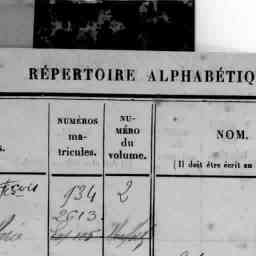 RÉPERTOIRE ALPHABÉTIQ
NUMÉROS
ma-
tricules.
NU-
MÉRO
du
volume.
NOM.
(Il doit être écrit en
s.
934
2
2613